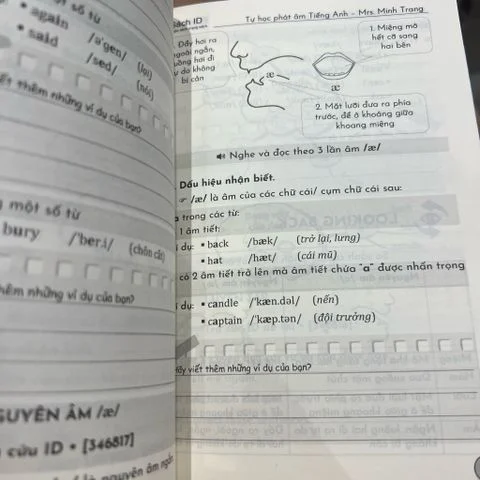 một số từ
• again /ə'gen/ (lại)
• said /sed/ (nói)
viết thêm những ví dụ của bạn?
một số từ
bury /'ber.i/ (chôn cất)
thêm những ví dụ của bạn?
NGUYÊN ÂM /æ/
cứu ID • [346817]
là nguyên âm ngắn
Sách ID
Tự học phát âm Tiếng Anh – Mrs. Minh Trang
Đẩy hơi ra
ngoài ngắn,
luồng hơi đi
tự do không
bị cản
1. Miệng mở
hết cỡ sang
hai bên
æ
æ
2. Mặt lưỡi đưa ra phía
trước, để ở khoảng giữa
khoang miệng
Nghe và đọc theo 3 lần âm /æ/
Dấu hiệu nhận biết.
/æ/ là âm của các chữ cái/ cụm chữ cái sau:
a trong các từ:
1 âm tiết:
dụ: • back /bæk/ (trở lại, lưng)
• hat /hæt/ (cái mũ)
có 2 âm tiết trở lên mà âm tiết chứa "a" được nhấn trọng
dụ: • candle /'kæn.dəl/ (nến)
• captain /'kæp.tən/ (đội trưởng)
Hãy viết thêm những ví dụ của bạn?